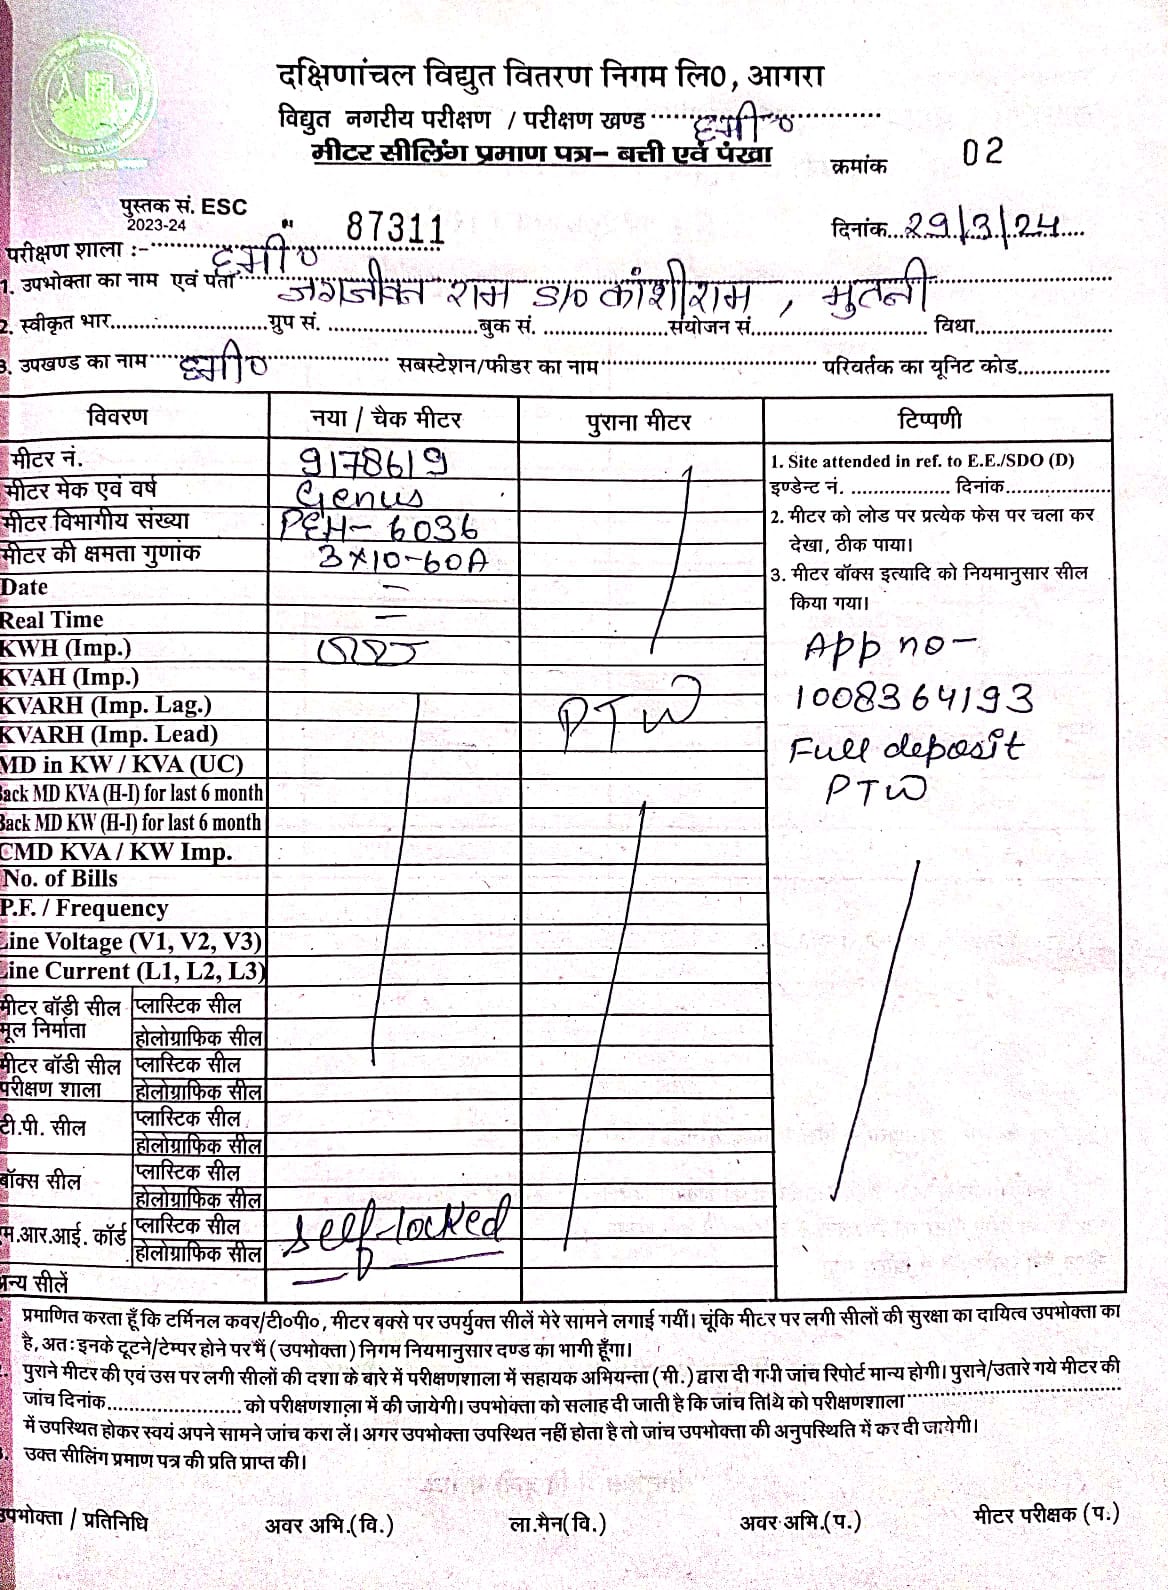 दक्षिणांचल विद्युत वितरण निगम लि0, आगरा
विद्युत नगरीय परीक्षण / परीक्षण खण्ड
मीटर सीलिंग प्रमाण पत्र- बत्ती एवं पंखा
क्रमांक 02
पुस्तक सं. ESC
2023-24
87311
दिनांक...29/3/24....
परीक्षण शाला :-
1. उपभोक्ता का नाम एवं पता जगजीवन राम S/O कांशीराम, मुतनी
2. स्वीकृत भार..........ग्रुप सं. ..........बुक सं. ..........संयोजन सं..........विधा..........
3. उपखण्ड का नाम .......... सबस्टेशन/फीडर का नाम .......... परिवर्तक का यूनिट कोड..........
विवरण नया / चैक मीटर पुराना मीटर टिप्पणी
मीटर नं. 9178619
मीटर मेक एवं वर्ष Genus
मीटर विभागीय संख्या PEH-6036
मीटर की क्षमता गुणांक 3*10-60A
Date -
Real Time -
KWH (Imp.)
KVAH (Imp.)
KVARH (Imp. Lag.)
KVARH (Imp. Lead)
PTW
MD in KW / KVA (UC)
Back MD KVA (H-I) for last 6 month
Back MD KW (H-I) for last 6 month
CMD KVA / KW Imp.
No. of Bills
P.F. / Frequency
Line Voltage (V1, V2, V3)
Line Current (L1, L2, L3)
मीटर बॉडी सील प्लास्टिक सील
मूल निर्माता होलोग्राफिक सील
मीटर बॉडी सील प्लास्टिक सील
परीक्षण शाला होलोग्राफिक सील
टी.पी. सील प्लास्टिक सील
होलोग्राफिक सील
बॉक्स सील प्लास्टिक सील
होलोग्राफिक सील
एम.आर.आई. कॉर्ड प्लास्टिक सील
होलोग्राफिक सील
self-locked
अन्य सीलें
1. Site attended in ref. to E.E./SDO (D)
इण्डेन्ट नं. .................. दिनांक...................
2. मीटर को लोड पर प्रत्येक फेस पर चला कर
देखा, ठीक पाया।
3. मीटर बॉक्स इत्यादि को नियमानुसार सील
किया गया।
App no -
1008364193
Full deposit
PTW
प्रमाणित करता हूँ कि टर्मिनल कवर/टी०पी०, मीटर बक्से पर उपर्युक्त सीलें मेरे सामने लगाई गयीं। चूंकि मीटर पर लगी सीलों की सुरक्षा का दायित्व उपभोक्ता का
है, अतः इनके टूटने/टेम्पर होने पर मैं (उपभोक्ता) निगम नियमानुसार दण्ड का भागी हूँगा।
पुराने मीटर की एवं उस पर लगी सीलों की दशा के बारे में परीक्षणशाला में सहायक अभियन्ता (मी.) द्वारा दी गयी जांच रिपोर्ट मान्य होगी। पुराने/उतारे गये मीटर की
जांच दिनांक........................को परीक्षणशाला में की जायेगी। उपभोक्ता को सलाह दी जाती है कि जांच तिथि को परीक्षणशाला
में उपस्थित होकर स्वयं अपने सामने जांच करा लें। अगर उपभोक्ता उपस्थित नहीं होता है तो जांच उपभोक्ता की अनुपस्थिति में कर दी जायेगी।
उक्त सीलिंग प्रमाण पत्र की प्रति प्राप्त की।
उपभोक्ता / प्रतिनिधि अवर अभि.(वि.) ला.मैन(वि.) अवर अभि.(प.) मीटर परीक्षक (प.)